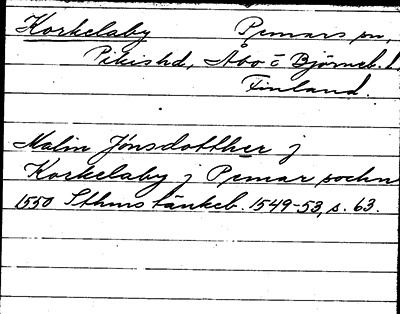 Korkelaby Pemars sn,
Pikishd, Åbo o Björneb. l.
Finland.
Malin Jönsdotther j
Korkelaby j Pemar sochn
1550 Sthms tänkeb. 1549-53, s. 63.